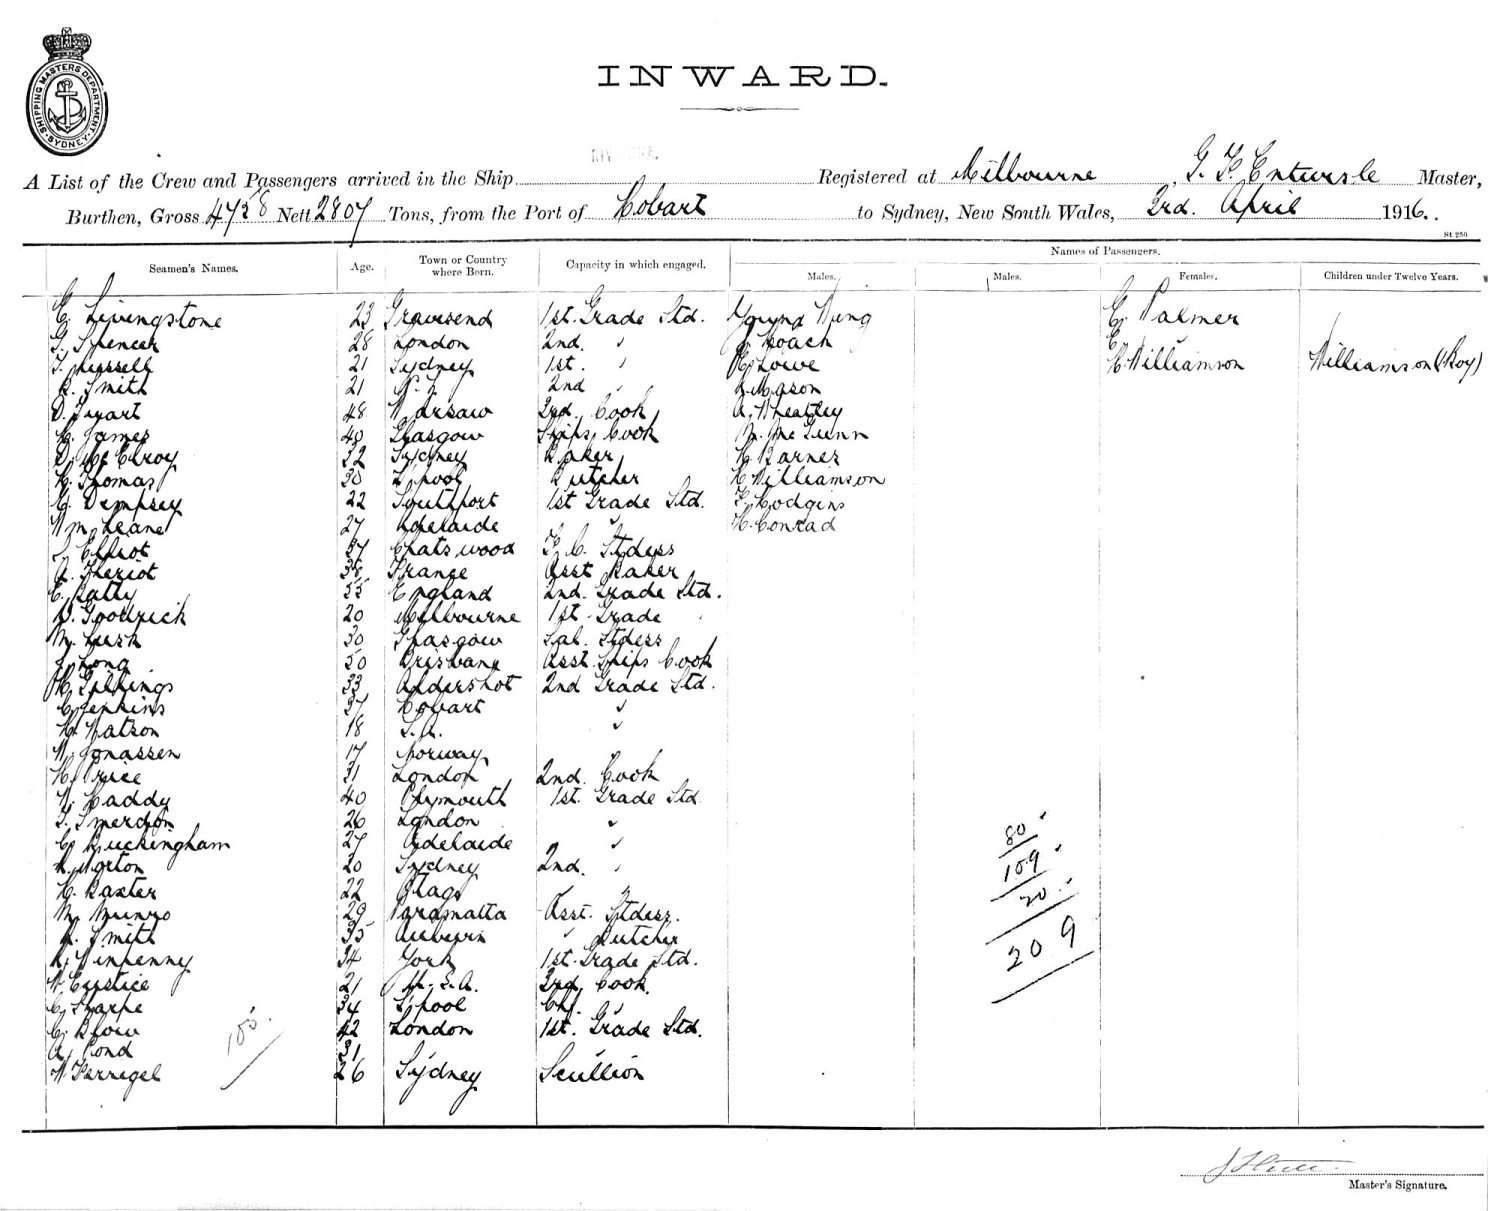 SHIPPING MASTERS DEPARTMENT SYDNEY
INWARD.
A List of the Crew and Passengers arrived in the Ship Registered at Melbourne, G. F. Entwisle Master,
Burthen, Gross 4758 Nett 2807 Tons, from the Port of Hobart to Sydney, New South Wales, 3rd. April 1916.
St 250
Seamen's Names. Age. Town or Country where Born. Capacity in which engaged. Names of Passengers.
Males. Males. Females. Children under Twelve Years.
C. Livingstone 23 Gravesend 1st. Grade Std. Young Wing E. Palmer
G. Spencer 28 London 2nd. " Roach
T. Russell 21 Sydney 1st. " Lowe Williamson Williamson (Boy)
R. Smith 21 N. Z. 2nd " Mason
48 Warsaw 3rd. Cook A. Wheatley
James 40 Glasgow Ships Cook M. McGunn
D. McElroy 32 Sydney Baker Barnes
H. Thomas 30 L'pool Butcher Williamson
Dempsey 22 Southport 1st Grade Std. F. Hodgins
Wm. Leane 27 Adelaide " H. Conrad
Elliot 37 Chatswood F. C. Stdess
A. Theriot 38 France Asst Baker
C. Batty 55 England 2nd. Grade Std.
D. Goodrick 20 Melbourne 1st Grade "
M. Lush 30 Glasgow Sal. Stdess
Long 50 Brisbane Asst. Ships Cook
H. Gillings 33 Aldershot 2nd Grade Std.
C. Jenkins 37 Hobart "
H. Watson 18 S.A. "
W. Jonassen 17 Norway
H. Price 31 London 2nd. Cook
W. Haddy 40 Plymouth 1st. Grade Std.
T. Smerdon 26 London "
C. Buckingham 27 Adelaide "
Norton 20 Sydney 2nd. "
H. Baxter 22 Otago
M. Munro 29 Paramatta Asst. Stdess.
Smith 35 Auburn " Butcher
Winpenny 34 York 1st. Grade Std.
W. Eustice 21 U.S.A. 3rd. Cook.
C. Sharpe 34 L'pool Chf. "
C. Blow 42 London 1st. Grade Std.
A. Pond 31
W. Farrugel 26 Sydney Scullion
80
109
20
209
Master's Signature.